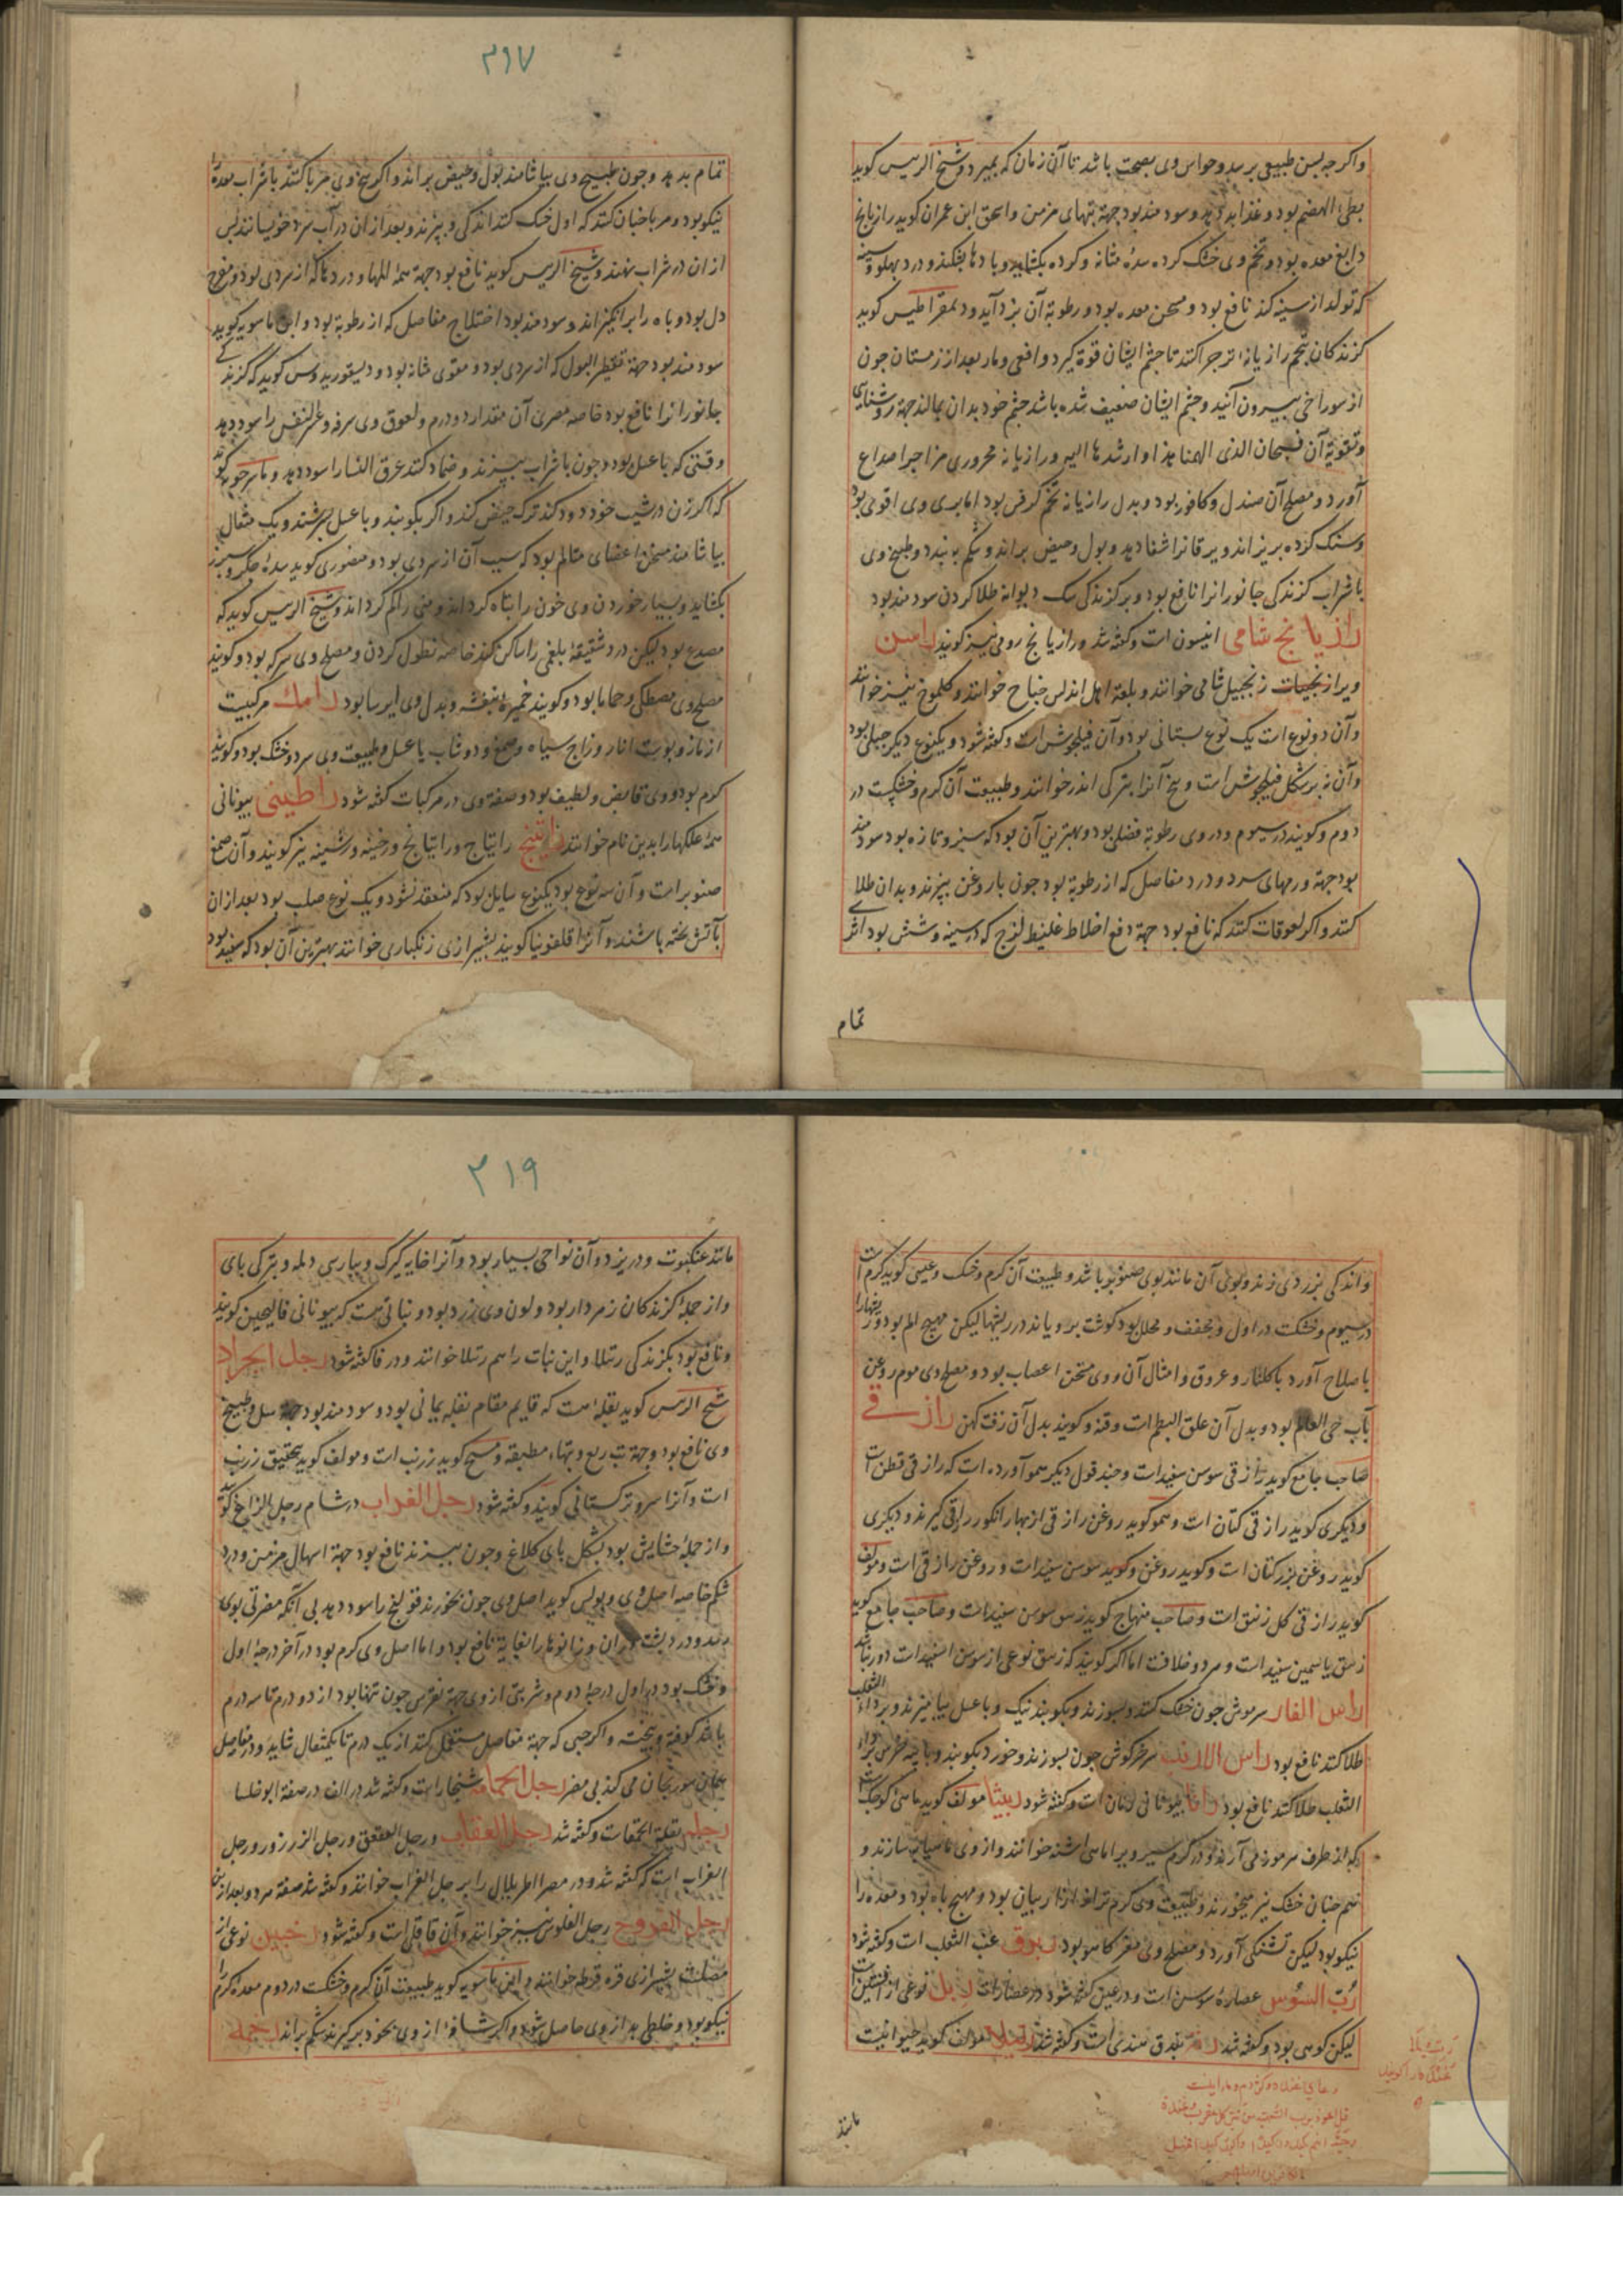 واکر چه بسن طبیعی برسد و حواس وی بصحت باشد تا آن زمان که بمیرد و شیخ الرییس کوید
بطی الهضم بود و غذا بد دهد و سودمند بود جهة تبهای مزمن واسحق ابن عمران کوید رازیانج
دابغ معده بود و تخم وی خشک کرده سدهٔ مثانه و کرده بکشاید و بادها بشکند و درد پهلو و سینه
که تولد از سینه کند نافع بود و مسخن معده بود و رطوبة آن بزداید و دیمقراطیس کوید
کزندکان تخم رازیانه ترجرا کنند تا چشم ایشان قوة کیرد و افعی و مار بعد از زمستان چون
از سوراخ بیرون آیند و چشم ایشان ضعیف شده باشد چشم خود بدان بمالند جهة روشنایی
وتقویة آن فسبحان الذی الهمنا هذا و ارشدها الیه و رازیانه محروری مزاجرا صداع
آورد و مصلح آن صندل و کافور بود و بدل رازیانه تخم کرفس بود اما بری وی اقوی بود
وسنک کرده بریزاند و یرقانرا شفا دهد و بول و حیض براند و شکم ببندد و طبیخ وی
باشراب کزندکی جانورانرا نافع بود و بر کزندکی سک دیوانه طلا کردن سودمند بود
رازیانج شامی انیسون است و کفته شد و رازیانج رومی نیز کویند راسن
ویرا زنجبیل شامی خوانند و بلغة اهل اندلس جناح خوانند و کلموج نیز خوانند
وآن دو نوع است یک نوع بستانی بود و آن فیلجوش است و کفته شود و یکنوع دیکر جبلی بود
وآن نه برشکل فیلجوش است و بیخ آنرا بترکی اندز خوانند و طبیعت آن کرم و خشکست در
دوم و کویند در سیوم و در وی رطوبة فضلی بود و بهترین آن بود که سبز و تازه بود سودمند
بود جهة ورمهای سرد و درد مفاصل که از رطوبة بود چون با روغن بپزند و بدان طلا
کنند و اکر لعوقات کنند که نافع بود جهة دفع اخلاط غلیظ لزج که در سینه و شش بود اثری
تمام
۳۱۷
تمام بدهد و چون طبیخ وی بیاشامند بول و حیض براند و اکر بیخ وی مربا کنند با شراب معده را
نیکو بود و مربا چنان کنند که اول خشک کنند اندکی و بپزند و بعد از ان در آب سرد خویسانند پس
از ان در شراب نهند و شیخ الرییس کوید نافع بود جهة همهٔ المها و دردها که از سردی بود و مفرح
دل بود و باه را برانکیزاند و سودمند بود اختلاج مفاصل که از رطوبة بود و ابن ماسویه کوید
سودمند بود جهة تقطیر البول که از سردی بود و مقوی مثانه بود و دیسقوریدوس کوید که کزندکی
جانورانرا نافع بود خاصه مصری آن مقدار دو درم و لعوق وی سرفه و عسر النفس را سود دهد
وقتی که با عسل بود و چون با شراب بپزند و ضماد کنند عرق النسا را سود دهد و ماسرجویه کوید
که اکر زن در شیب خود دود کند ترک حیض کند و اکر بکوبند و با عسل بسرشند و یک مثقال
بیاشامند مسخن اعضای متالم بود که سبب آن از سردی بود و منصوری کوید سدهٔ جکر و سپرز
بکشاید و بسیار خوردن وی خون را تباه کرداند و منی را کم کرداند و شیخ الرییس کوید که
مصدع بود لیکن درد شقیقه بلغمی را ساکن کند خاصه نطول کردن و مصلح وی سرکه بود و کویند
مصلح وی مصطکی و حماما بود و کویند خمیرهٔ بنفشه و بدل وی ایرسا بود رامک مرکبیست
از مازو و پوست انار و زاج سیاه و صمغ و دوشاب یا عسل و طبیعت وی سرد و خشک بود و کویند
کرم بود و وی قابض و لطیف بود و صفة وی در مرکبات کفته شود راطینی بیونانی
همهٔ علکهارا بدین نام خوانند راتینج راتیاج و راتیانج و رخینه و رشینه نیز کویند و آن صمغ
صنوبر است و آن سه نوع بود یکنوع سایل بود که منعقد نشود و یک نوع صلب بود بعد از ان
بآتش پخته باشند و آنرا قلفونیا کویند بشیرازی زنکباری خوانند بهترین آن بود که سفید بود
واندکی بزردی زند و بوی آن مانند بوی صنوبر باشد و طبیعت آن کرم و خشک و عیسی کوید کرم است
در سیوم و خشکست در اول و مجفف و محلل بود کوشت برویاند در ریشها لیکن مهیج الم بود و ریشهارا
باصلاح آورد با کلنار و عروق و امثال آن و وی مسخن اعصاب بود و مصلح وی موم روغن
بآب حی العالم بود و بدل آن علق البطم است و قنه و کویند بدل آن زفت کهن رازقی
صاحب جامع کوید رازقی سوسن سفید است و چند قول دیکر همو آورده است که رازقی قطن است
و دیکری کوید رازقی کتان است و همو کوید روغن رازقی از بهار انکور رازقی کیرند و دیکری
کوید روغن بزر کتان است و کوید روغن و کوید سوسن سفید است و روغن رازقی است و مولف
کوید رازقی کل زنبق است و صاحب منهاج کوید زنبق سوسن سفید است و صاحب جامع کوید
زنبق یاسمین سفید است و هر دو خلافست اما اکر کویند که زنبق نوعی از سوسن اسفید است دور نباشد
راس الفار سر موش چون خشک کنند و بسوزند و بکوبند نیک و با عسل بیامیزند و بر داء الثعلب
طلا کنند نافع بود راس الارنب سر خرکوش چون بسوزند و خورد بکوبند و با پیه خرس بر داء
الثعلب طلا کنند نافع بود رافا بیونانی رمان است و کفته شود ربیثا مولف کوید ماهی کوچک است
که از طرف هرموز می آرند و در کرم سیر ویرا ماهی اشنه خوانند و از وی ماهیابه سازند و
هم چنان خشک نیز میخورند و طبیعت وی کرم تر از اربیان بود و مهیج باه بود و معده را
نیکو بود لیکن تشنکی آورد و مصلح وی مغز کاهو بود ربرق عنب الثعلب است و کفته شود
رُبّ السّوس عصارهٔ سوس است و در عین کفته شود در عصارات ربل نوعی از افسنتین است
لیکن کوهی بود و کفته شد رته بندق هندی است و کفته شد رتیلا مولف کوید حیوانیست
مانند
۳۱۹
مانند عنکبوت و در یزد و آن نواحی بسیار بود و آنرا خایه کیرک و پبارسی دلمه و بترکی بای
واز جملهٔ کزندکان زهردار بود و لون وی زرد بود و نباتی هست که بیونانی فالیجین کویند
ونافع بود بکزندکی رتیلا و این نبات را هم رتیلا خوانند و در فا کفته شود رجل الجراد
شیخ الرییس کوید بقله است که قایم مقام بقله یمانی بود و سودمند بود جهة سل و طبیخ
وی نافع بود جهة تب ربع و تبهاء مطبقه و مسیح کوید زرنب است و مولف کوید بتحقیق زرنب
است و آنرا سرو ترکستانی کویند و کفته شود رجل الغراب در شام رجل الزاغ کویند
واز جملهٔ حشایش بود بشکل بای کلاغ و چون بپزند نافع بود جهة اسهال مزمن و درد
شکم خاصه اصل وی و پولس کوید اصل وی چون بخورند قولنج را سود دهد بی آنکه مضرتی بوی
رسد و درد پشت و ران و زانوها را بغایة نافع بود و اما اصل وی کرم بود در آخر درجهٔ اول
وخشک بود در اول درجهٔ دوم و شربتی از وی جهة نقرس چون تنها بود از دو درم تا سه درم
باشد کوفته و بیخته و اکر حبی که جهة مفاصل مستعمل کنند از یک درم تا یکمثقال شاید و در مفاصل
همان سورنجان می کند بی مضرة رجل الحمامه شنجار است و کفته شد در الف در صفة ابوخلسا
رجله بقلة الحمقا است و کفته شد رجل العقاب و رجل العقعق و رجل الزرزور و رجل
الغراب است که کفته شد و در مصر اطریلال را رجل الغراب خوانند و کفته شد صفة هر دو بعد از ین
رجل الفروج رجل الفلوس نیز خوانند و آن قاقلی است و کفته شود رخبین نوعی از
مصلست بشیرازی قره قروط خوانند و ابن ماسویه کوید طبیعت آن کرم و خشکست در دوم معده کرم را
نیکو بود و خلطی بد از وی حاصل شود و اکر شافه از وی بخود بر کیرند شکم براند رخمه